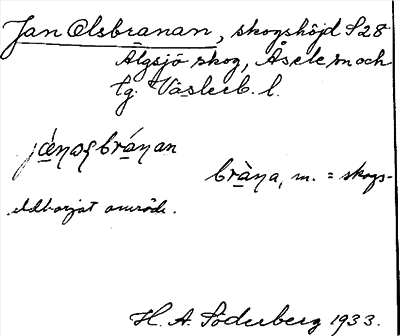 Jan Olsbranan, skogshöjd S28
Älgsjö skog, Åsele sn och
lg. Västerb. l.
bràna, m. = skogs-
eldhärjat område.
H. A. Söderberg 1933.